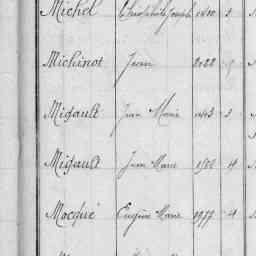 Michel Théophile Joseph 1400 3
Michinot Jean 2022
Migault Jean Marie 1443 3
Migault Jean Marie 4
Mocquié Eugène Marie 1977 4